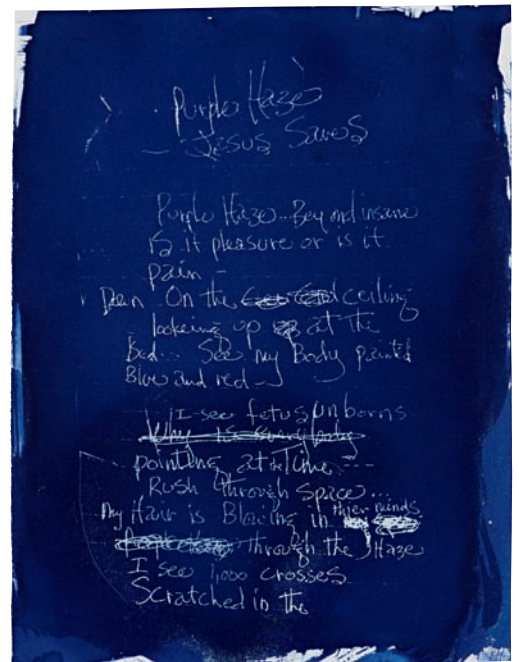 Purple Haze
- Jesus Saves
Purple Haze... Beyond insane
is it pleasure or is it
pain -
Down On the ceiling
lookeing up at the
Bed... See my Body painted
Blue and red -
I see fetus unborns
pointing at Time ---
Rush through Space...
my Hair is Blowing in thier minds
through the Haze
I see 1,000 crosses
Scratched in the